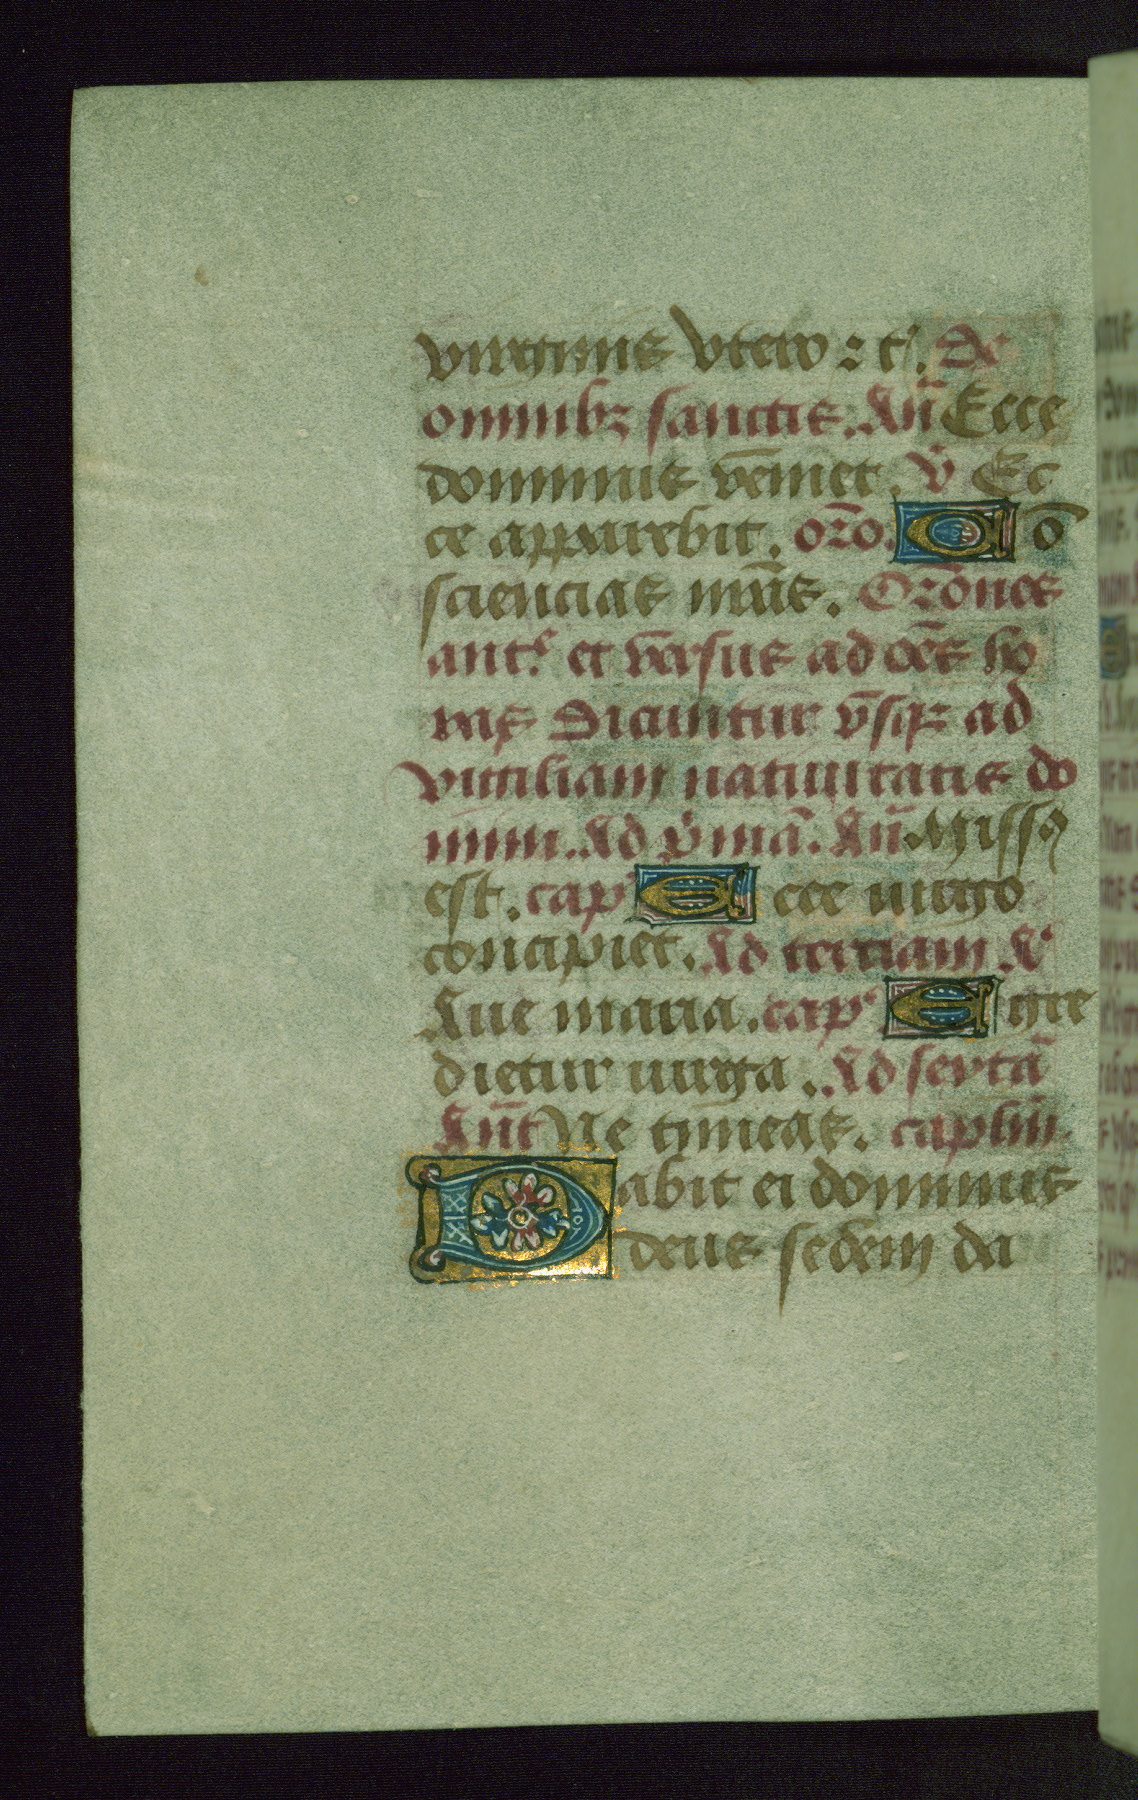 virginis vtero ⁊ c̓. De
omnibꝫ sanctis. An̄ Ecce
dominus vēniet. v̄ Ec
ce apparebit. or̄o. C ō
sciencias nr̄as. Or̄ones
ant.ͤ et v̄ersus ad oēs ho
ras Dicuntur v̄sqꝫ ad
viuiliam natiuitatis do
mini. Ad p̄imā. An̄ Miss9
est. cap̓ E cce uirgo
concipiet. Ad terciam A̓
Aue maria. cap̓ E gre
dietur uirga. Ad sextā
An̄t Ne tim̄eas. caplm̄.
D abit ei dominus
deus sedem da